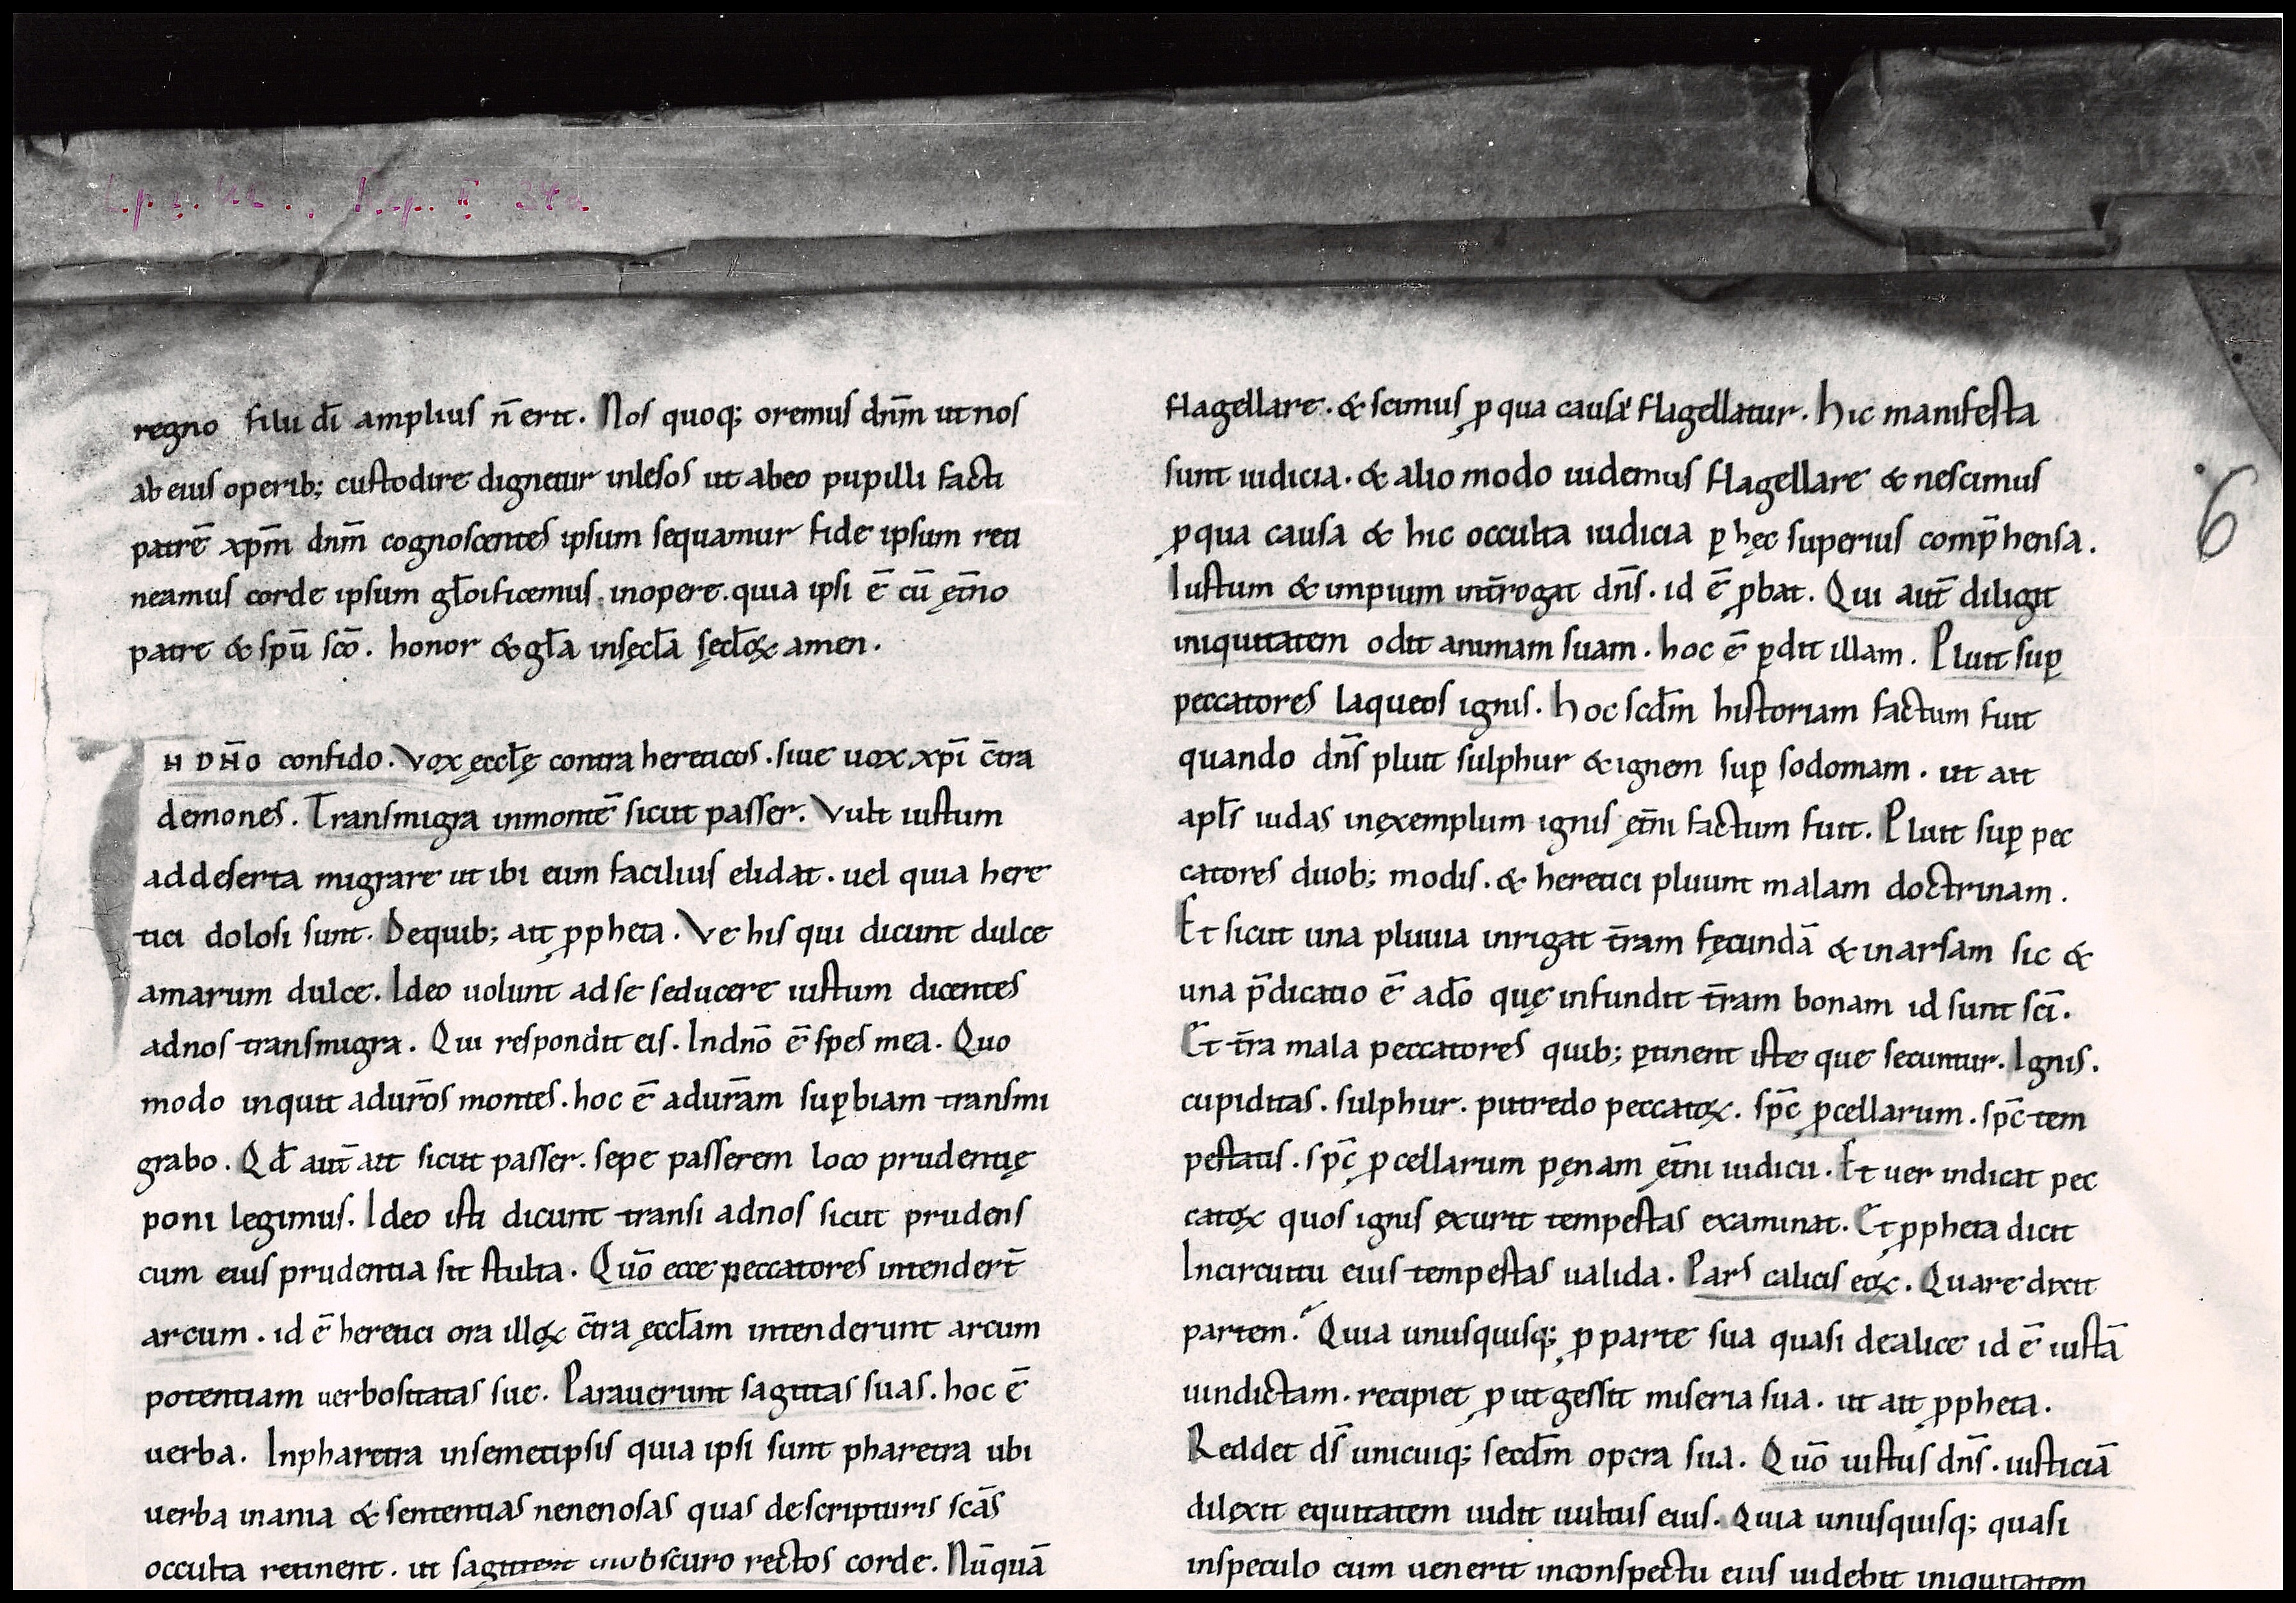 regno filii dī amplius n̄ erit. Nos quoq; oremus dnm̄ ut nos
ab eius operib; custodire dignetur inlesos ut abeo pupilli facti
patrē xpm̄ dnm̄ cognoscentes ipsum sequamur fide ipsum reti
neamus corde ipsum gl̄oificemus inopere. quia ipsi ē cū ęt̄no
patre & spū scō. honor & gl̄a insęcl̄a sęcl̄oꝝ amen.
N DN̄O confido. Vox ęccl̄ę contra hereticos. siue uox xpī c̄tra
demones. Transmigra inmontē sicut passer. Vult iustum
addeserta migrare ut ibi eum facilius elidat. uel quia here
tici dolosi sunt. Dequib; ait ꝓpheta. Ve his qui dicunt dulce
amarum dulce. Ideo uolunt adse seducere iustum dicentes
adnos transmigra. Qui respondit eis. Indnō ē spes mea. Quo
modo inquit adur̄os montes. hoc ē adurām suꝑbiam transmi
grabo. Qđ aut̄ ait sicut passer. sepe passerem loco prudentię
poni legimus. Ideo isti dicunt transi adnos sicut prudens
cum eius prudentia sit stulta. Quō ecce peccatores intender̄t
arcum. id ē heretici ora illoꝝ c̄tra ęccl̄am intenderunt arcum
potentiam uerbositatas sue. Parauerunt sagittas suas. hoc ē
uerba. Inpharetra insemetipsis quia ipsi sunt pharetra ubi
uerba inania & sententias nenenosas quas descripturis scās
occulta retinent. ut sagittent inobscuro rectos corde. Nūquā
flagellare. & scimus ꝓ qua causa flagellatur. hic manifesta
sunt iudicia. & alio modo uidemus flagellare & nescimus
ꝓ qua causa & hic occulta iudicia ꝑ hęc superius comp̄hensa.
Iustum & impium int̄rogat dn̄s. id ē ꝓbat. Qui aut̄ diligit
iniquitatem odit animam suam. hoc ē ꝑdit illam. Pluit suꝑ
peccatores laqueos ignis. hoc scdm̄ historiam factum fuit
quando dn̄s pluit sulphur & ignem suꝑ sodomam. ut ait
apl̄s iudas inęxemplum ignis ęt̄ni factum fuit. Pluit suꝑ pec
catores duob; modis. & heretici pluunt malam doctrinam.
Et sicut una pluuia inrigat t̄ram fęcundā & inarsam sic &
una p̄dicatio ē adō quę infundit t̄ram bonam id sunt scī.
Et t̄ra mala peccatores quib; ꝑtinent iste que secuntur. Ignis.
cupiditas. sulphur. putredo peccatoꝝ. spc̄ ꝓcellarum. spc̄ tem
pestatis. spc̄ ꝓcellarum pęnam ęt̄ni iudicii. Et uer indicat pec
catoꝝ quos ignis exurit tempestas examinat. Et ꝓpheta dicit
Incircuitu eius tempestas ualida. Pars calicis eoꝝ. Quare dixit
partem. Quia unusquisq; ꝓ parte sua quasi decalice id ē iustā
uindictam. recipiet ꝓ ut gessit miseria sua. ut ait ꝓpheta.
Reddet ds̄ unicuiq; secdm̄ opera sua. Quō iustus dn̄s. iusticiā
dilexit equitatem uidit uultus eius. Quia unusquisq; quasi
inspeculo cum uenerit inconspectu eius uidebit iniquitatem
6